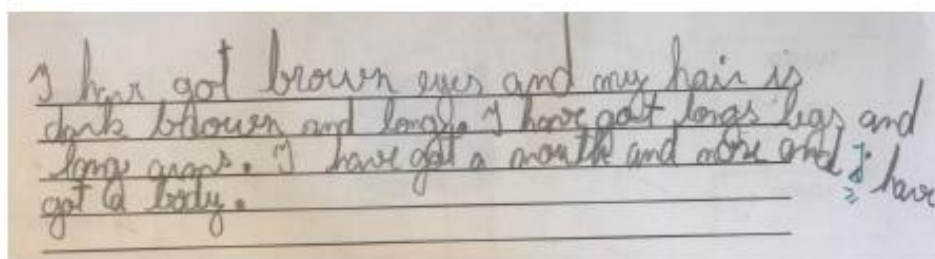 I have got brown eyes and my hair is
dark brouen and long. I have got longs legs and
long arms. I have got a mouth and nose and I have
got a body.